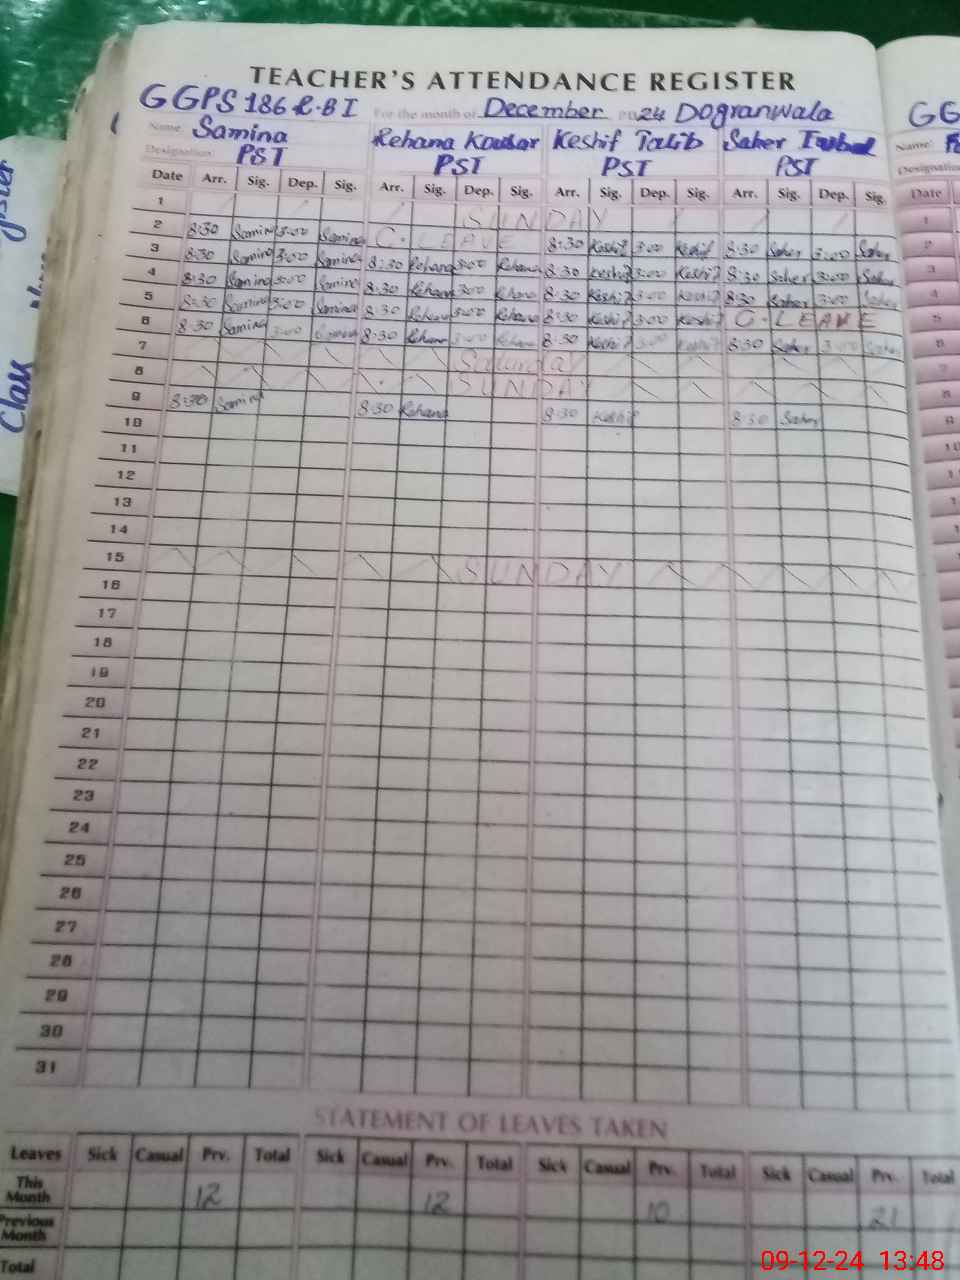 TEACHER'S ATTENDANCE REGISTER
GGPS 186 R.B I For the month of December 2024 Dogranwala
Name: Samina Rehana Kousar Keshif Talib Saher
Designation: PST PST PST PST
Date Arr. Sig. Dep. Sig. Arr. Sig. Dep. Sig. Arr. Sig. Dep. Sig. Arr. Sig. Dep. Sig.
1 SUNDAY
2 8:30 Samina 3:00 Samina C. LEAVE 8:30 Keshif 3:00 Keshif 8:30 Saher 3:00 Saher
3 8:30 Samina 3:00 Samina 8:30 Rehana 3:00 Rehana 8:30 Keshif 3:00 Keshif 8:30 Saher 3:00 Saher
4 8:30 Samina 3:00 Samina 8:30 Rehana 3:00 Rehana 8:30 Keshif 3:00 Keshif 8:30 Saher 3:00 Saher
5 8:30 Samina 3:00 Samina 8:30 Rehana 3:00 Rehana 8:30 Keshif 3:00 Keshif C. LEAVE
6 8:30 Samina 3:00 Samina 8:30 Rehana 3:00 Rehana 8:30 Keshif 3:00 Keshif 8:30 Saher 3:00 Saher
7 Saturday
8 SUNDAY
9 8:30 Samina 8:30 Rehana 8:30 Keshif 8:30 Saher
10
11
12
13
14
15 SUNDAY
16
17
18
19
20
21
22
23
24
25
26
27
28
29
30
31
STATEMENT OF LEAVES TAKEN
Leaves Sick Casual Prv. Total Sick Casual Prv. Total Sick Casual Prv. Total Sick Casual Prv. Total
This Month 12 12 10 21
Previous Month
Total
GG
Name:
Designation
Date
1
2
3
4
5
6
7
8
9
10
Class
09-12-24 13:48